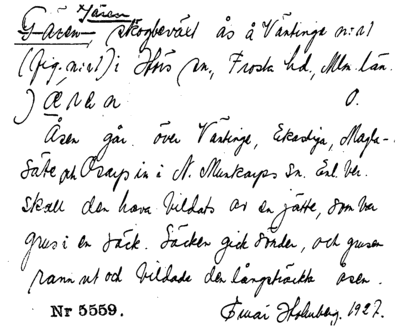 Jären
Gären, skogbeväxt ås å Väntinge n:r 1
(fig. n:r 1) i Hörs sn, Frosta hd, Mlm. län.
) æ r e n O.
Åsen går över Väntinge, Ekastiga, Magla-
säte och Osarp in i N. Munkarps sn. Enl. ber.
skall den hava bildats av en jätte, som bar
grus i en säck. Säcken gick sönder, och grusen
rann ut och bildade den långsträckta åsen.
Nr 5559. Holmberg. 1927.